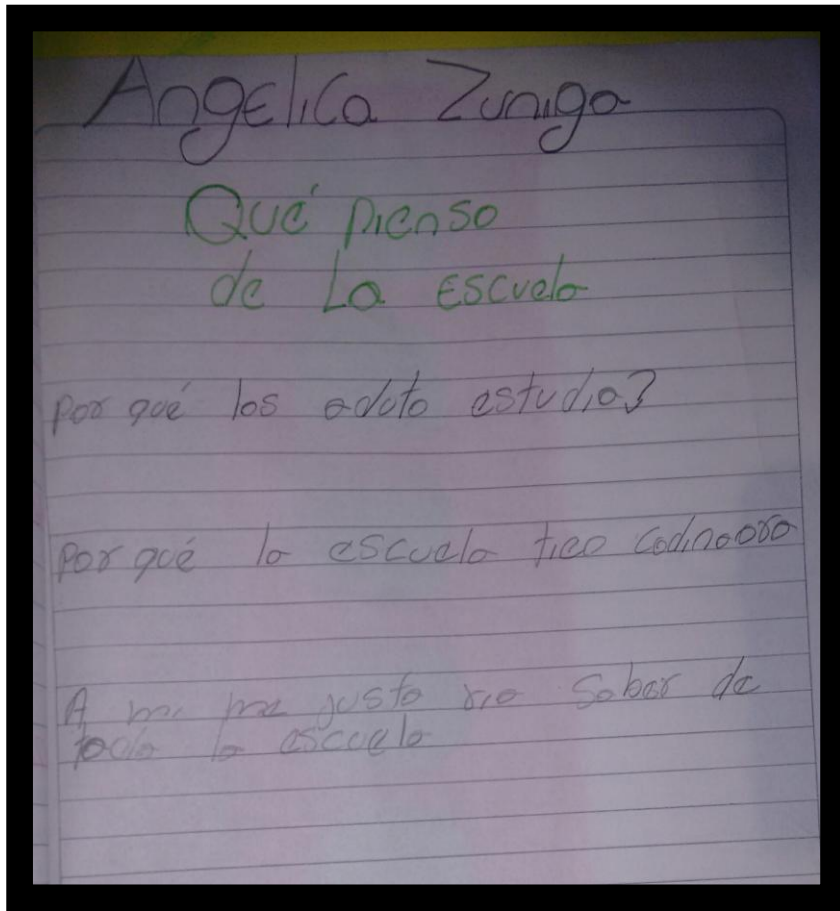 Angelica Zuniga
Qué pienso
de La escuela
por qué los aduto estudia?
por qué la escuela tieo codinaora
A mi me justa ria saber de
toda la escuela